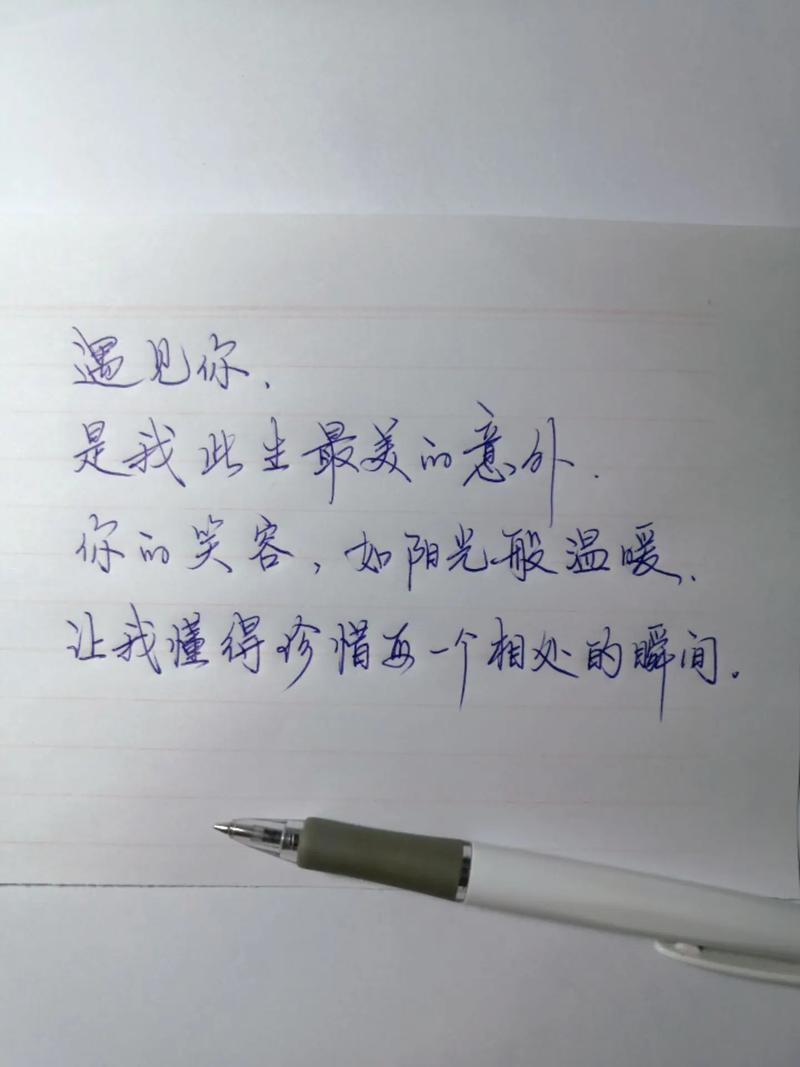 遇见你,
是我此生最美的意外.
你的笑容,如阳光般温暖,
让我懂得珍惜每一个相处的瞬间。